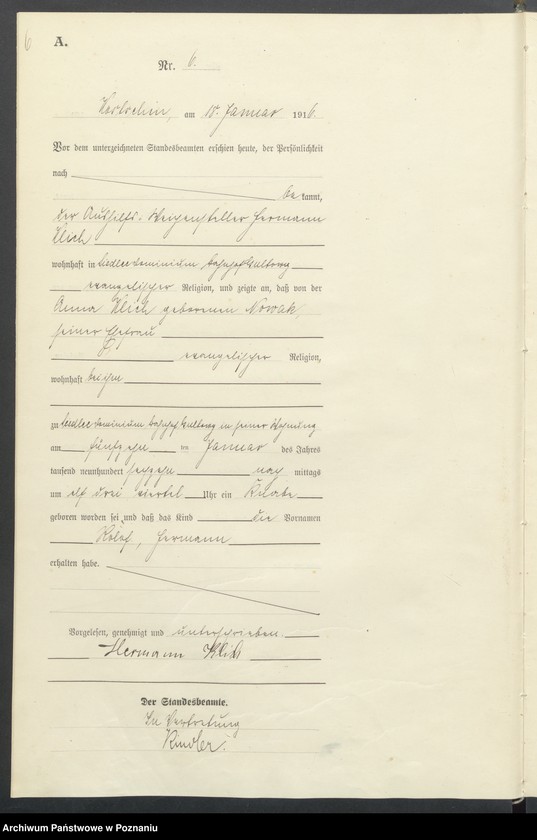 6
A.
Nr. 6.
am 18. Januar 1916.
Vor dem unterzeichneten Standesbeamten erschien heute, der Persönlichkeit
nach
bekannt,
der Aushilfs-Weichensteller Hermann
Klich
wohnhaft in
evangelischer Religion, und zeigte an, daß von der
Anna Klich geborenen Nowak,
seiner Ehefrau
evangelischer Religion,
wohnhaft bei ihm
zu in seiner Wohnung
am fünfzehn ten Januar des Jahres
tausend neunhundert sechzehn nach mittags
um elf drei viertel Uhr ein Knabe
geboren worden sei und daß das Kind die Vornamen
Hermann
erhalten habe.
Vorgelesen, genehmigt und unterschrieben.
Hermann Klich
Der Standesbeamte.
In Vertretung
Archiwum Państwowe w Poznaniu